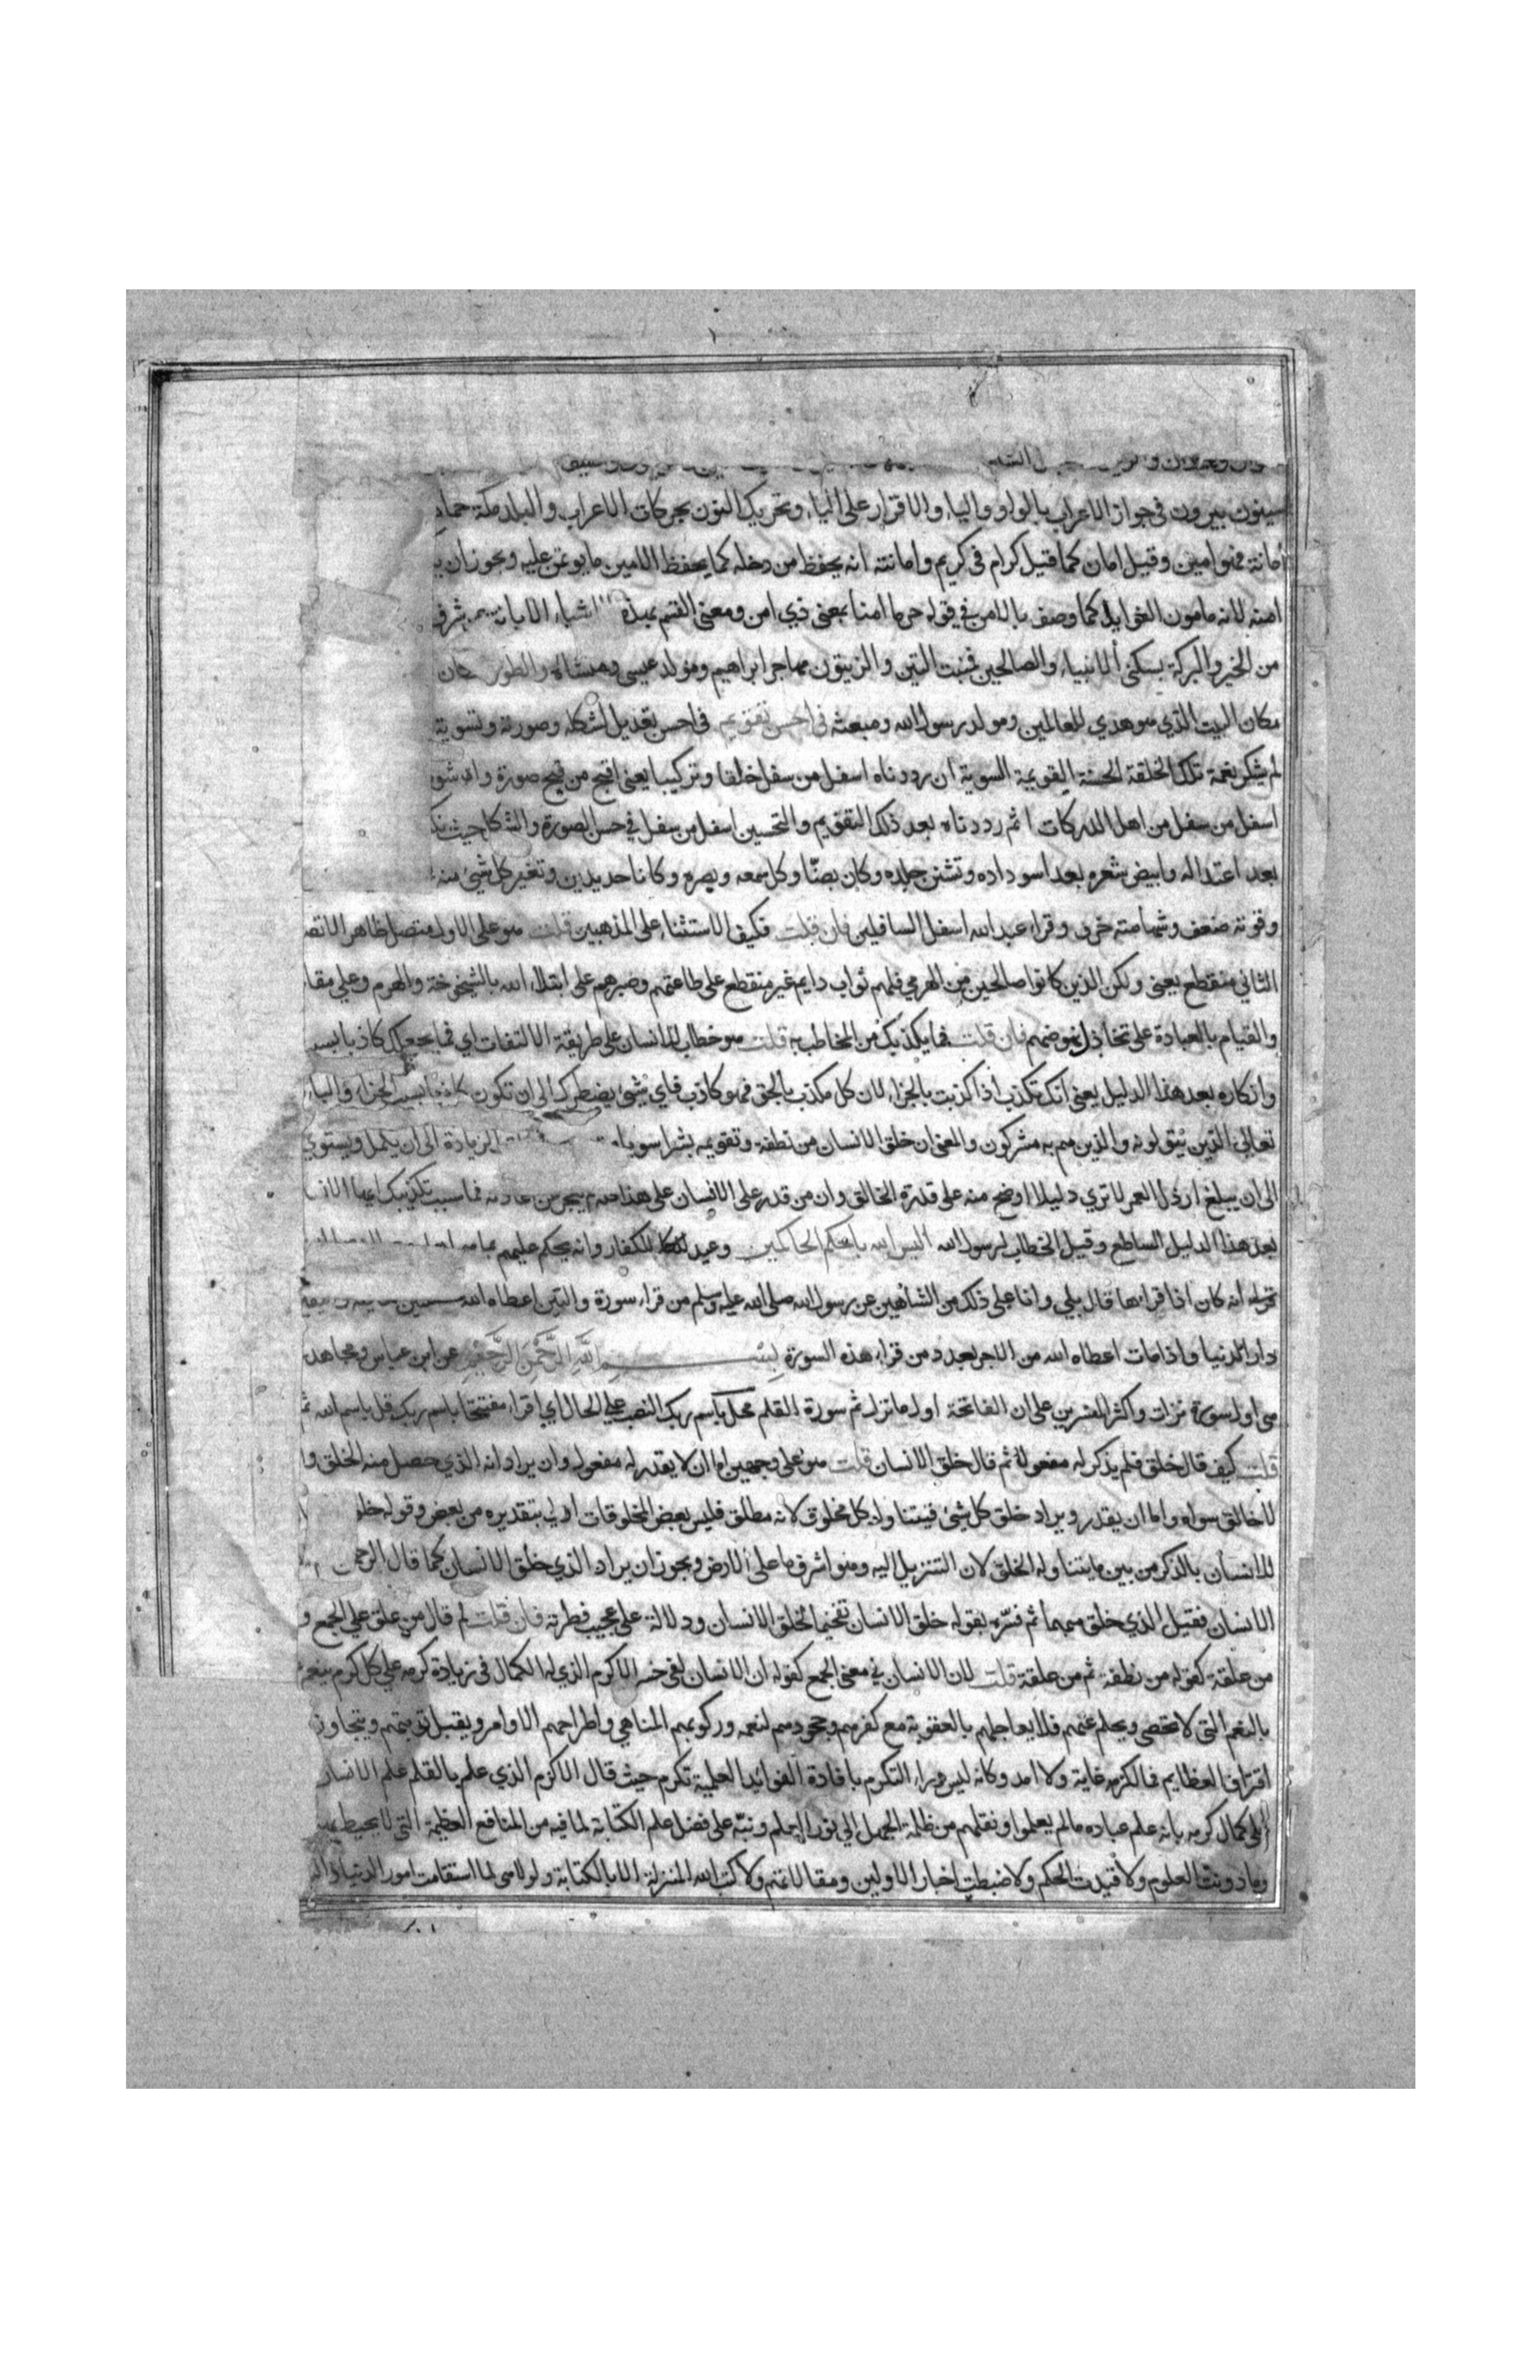 سينون بيرون في جواز الاعراب بالواو والياء والاقرار على الياء وتحريك النون بحركات الاعراب والبلد مكة حماه
امانة فهو امين وقيل امان كما قيل كرام في كريم وامانته انه يحفظ من دخله كما يحفظ الامين ما يوتمن عليه ويجوز ان
امنه لانه مامون الغوايل كما وصف بالامن في قوله حرما امنا بمعنى ذي امن ومعنى القسم بهذه الاشياء الابانة شرف
من الخير والبركة بسكنى الانبياء والصالحين فمنبت التين والزيتون مهاجر ابراهيم ومولد عيسى ومنشاه والطور
مكان البيت الذي هو هدي للعالمين ومولد رسول الله ومبعثه في احسن تقويم في احسن تعديل لشكله وصورته وتسوية
لم يشكر نعمة تلك الخلقة الحسنة القويمة السوية ان رددناه اسفل من سفل خلقا وتركيبا يعني اقبح من قبح صورة واشو
اسفل من سفل من اهل الدركات ثم رددناه بعد ذلك التقويم والتحسين اسفل من سفل في حسن الصورة والشكل حيث نك
بعد اعتداله وابيض شعره بعد اسوداده وتشنن جلده وكان بضا وكل سمعه وبصره وكانا حديدين وتغير كل شيء منه
وقوته ضعف وشهامته خرف وقراء عبد الله اسفل السافلين فان قلت فكيف الاستثناء على المذهبين قلت هو على الاول متصل ظاهر الاتص
الثاني منقطع يعني ولكن الذين كانوا صالحين من الهرمي فلهم ثواب دايم غير منقطع على طاعتهم وصبرهم على ابتلاء الله بالشيخوخة والهرم وعلى مقا
والقيام بالعبادة على تخاذل نهوضهم فان قلت فما يكذبك من المخاطب به قلت هو خطاب للانسان على طريقة الالتفات اي فما يجعلك كاذبا بسبـ
وانكاره بعد هذا الدليل يعني انك تكذب اذا كذبت بالجزاء لان كل مكذب بالحق فهو كاذب فاي شيء يضطرك الى ان تكون كاذبا بسبب الجزاء والباء
تعالى الذين يتولونه والذين هم به مشركون والمعنى ان خلق الانسان من نطفة وتقويمه بشرا سويا الزيادة الى ان يكمل ويستوي
الى ان يبلغ ارذل العمر لا تري دليلا اوضح منه على قدرة الخالق وان من قدر على الانسان على هذا كله لم يعجز عن اعادته فما سبب تكذيبك ايها الانـ
بعد هذا الدليل الساطع وقيل الخطاب لرسول الله اليس الله باحكم الحاكمين وعيد للكفار وانه يحكم عليهم بما هم
انه كان اذا قراها قال بلي وانا على ذلك من الشاهدين عن رسول الله صلى الله عليه وسلم من قراء سورة والتين اعطاه الله
دار الدنيا واذا مات اعطاه الله من الاجر بعدد من قراء هذه السورة بسم الله الرحمن الرحيم عن ابن عباس ومجاهد
هي اول سورة نزلت واكثر المفسرين على ان الفاتحة اول ما نزل ثم سورة القلم محل باسم ربك النصب على الحال اي اقراء مفتتحا باسم ربك قل باسم الله ثم
قلت كيف قال خلق فلم يذكر له مفعولا ثم قال خلق الانسان قلت هو على وجهين اما ان لا يقدر له مفعول وان يراد انه الذي حصل منه الخلق وا
لا خالق سواه واما ان يقدر ويراد خلق كل شيء فيتناول كل مخلوق لانه مطلق فليس بعض المخلوقات اولي بتقديره من بعض وقوله خلـ
للانسان بالذكر من بين ما يتناوله الخلق لان التنزيل اليه وهو اشرف ما على الارض ويجوز ان يراد الذي خلق الانسان كما قال الرحمـ
الانسان فقيل الذي خلق مبهما ثم فسره بقوله خلق الانسان تفخيما لخلق الانسان ودلالة على عجيب فطرته فان قلت لم قال من علق على الجمع و
من علقة كقوله من نطفة ثم من علقة قلت لان الانسان في معنى الجمع كقوله ان الانسان لفي خسر الاكرم الذي له الكمال في زيادة كرمه على كل كرم ينعم
بالنعم التي لا تحصى ويحلم عنهم فلا يعاجلهم بالعقوبة مع كفرهم وجحودهم لنعمه وركوبهم المناهي واطراحهم الاوامر ويقبل توبتهم ويتجاوز
اقتراف العظايم فما لكرمه غاية ولا امد وكانه ليس وراء التكرم بافادة الفوائد العلمية تكرم حيث قال الاكرم الذي علم بالقلم علم الانسان
على كمال كرمه بانه علم عباده ما لم يعلموا ونقلهم من ظلمة الجهل الي نور العلم ونبه على فضل علم الكتابة لما فيه من المنافع العظيمة التي لا يحيط بها
وما دونت العلوم ولا قيدت الحكم ولا ضبطت اخبار الاولين ومقالاتهم ولا كتب الله المنزلة الا بالكتابة ولولا هي لما استقامت امور الدنيا